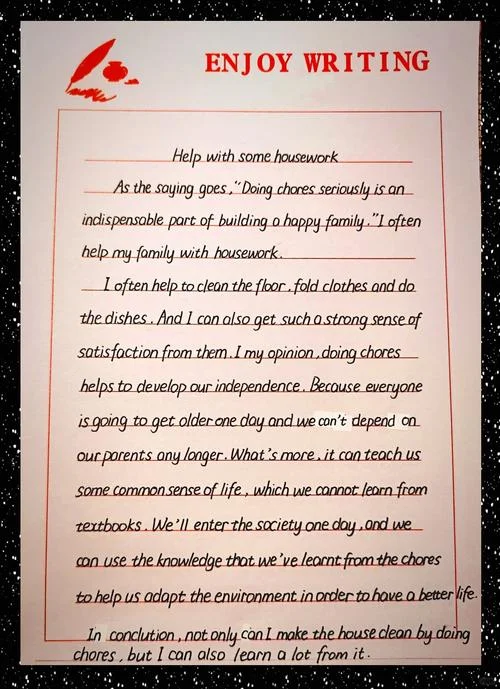 ENJOY WRITING
Help with some housework
As the saying goes, "Doing chores seriously is an
indispensable part of building a happy family." I often
help my family with housework.
I often help to clean the floor, fold clothes and do
the dishes. And I can also get such a strong sense of
satisfaction from them. I my opinion, doing chores
helps to develop our independence. Because everyone
is going to get older one day and we can't depend on
our parents any longer. What's more, it can teach us
some common sense of life, which we cannot learn from
textbooks. We'll enter the society one day, and we
can use the knowledge that we've learnt from the chores
to help us adapt the environment in order to have a better life.
In conclution, not only can I make the house clean by doing
chores, but I can also learn a lot from it.